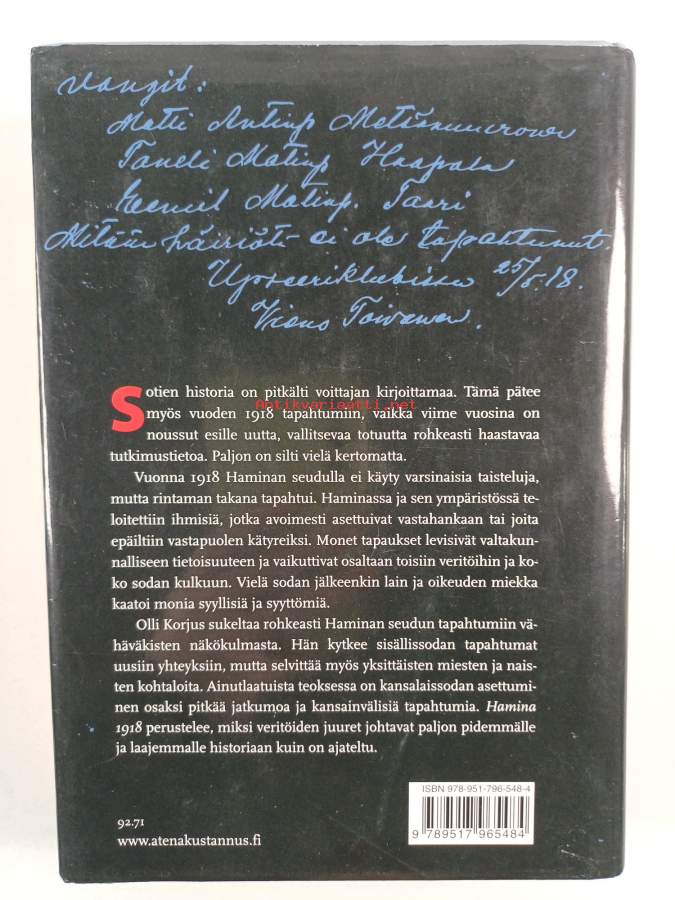 Vangit:
Matti Antinp Metsämuuronen
Taneli Matinp Haapala
Eemil Matinp. Taari
Mitään häiriötä ei ole tapahtunut.
Upseeriklubissa 25/5.18.
Toivonen.
Sotien historia on pitkälti voittajan kirjoittamaa. Tämä pätee
Antikvariaatti.net
myös vuoden 1918 tapahtumiin, vaikka viime vuosina on
noussut esille uutta, vallitsevaa totuutta rohkeasti haastavaa
tutkimustietoa. Paljon on silti vielä kertomatta.
Vuonna 1918 Haminan seudulla ei käyty varsinaisia taisteluja,
mutta rintaman takana tapahtui. Haminassa ja sen ympäristössä te-
loitettiin ihmisiä, jotka avoimesti asettuivat vastahankaan tai joita
epäiltiin vastapuolen kätyreiksi. Monet tapaukset levisivät valtakun-
nalliseen tietoisuuteen ja vaikuttivat osaltaan toisiin veritöihin ja ko-
ko sodan kulkuun. Vielä sodan jälkeenkin lain ja oikeuden miekka
kaatoi monia syyllisiä ja syyttömiä.
Olli Korjus sukeltaa rohkeasti Haminan seudun tapahtumiin vä-
häväkisten näkökulmasta. Hän kytkee sisällissodan tapahtumat
uusiin yhteyksiin, mutta selvittää myös yksittäisten miesten ja nais-
ten kohtaloita. Ainutlaatuista teoksessa on kansalaissodan asettumi-
nen osaksi pitkää jatkumoa ja kansainvälisiä tapahtumia. Hamina
1918 perustelee, miksi veritöiden juuret johtavat paljon pidemmälle
ja laajemmalle historiaan kuin on ajateltu.
ISBN 978-951-796-548-4
9 789517 965484
92.71
www.atenakustannus.fi